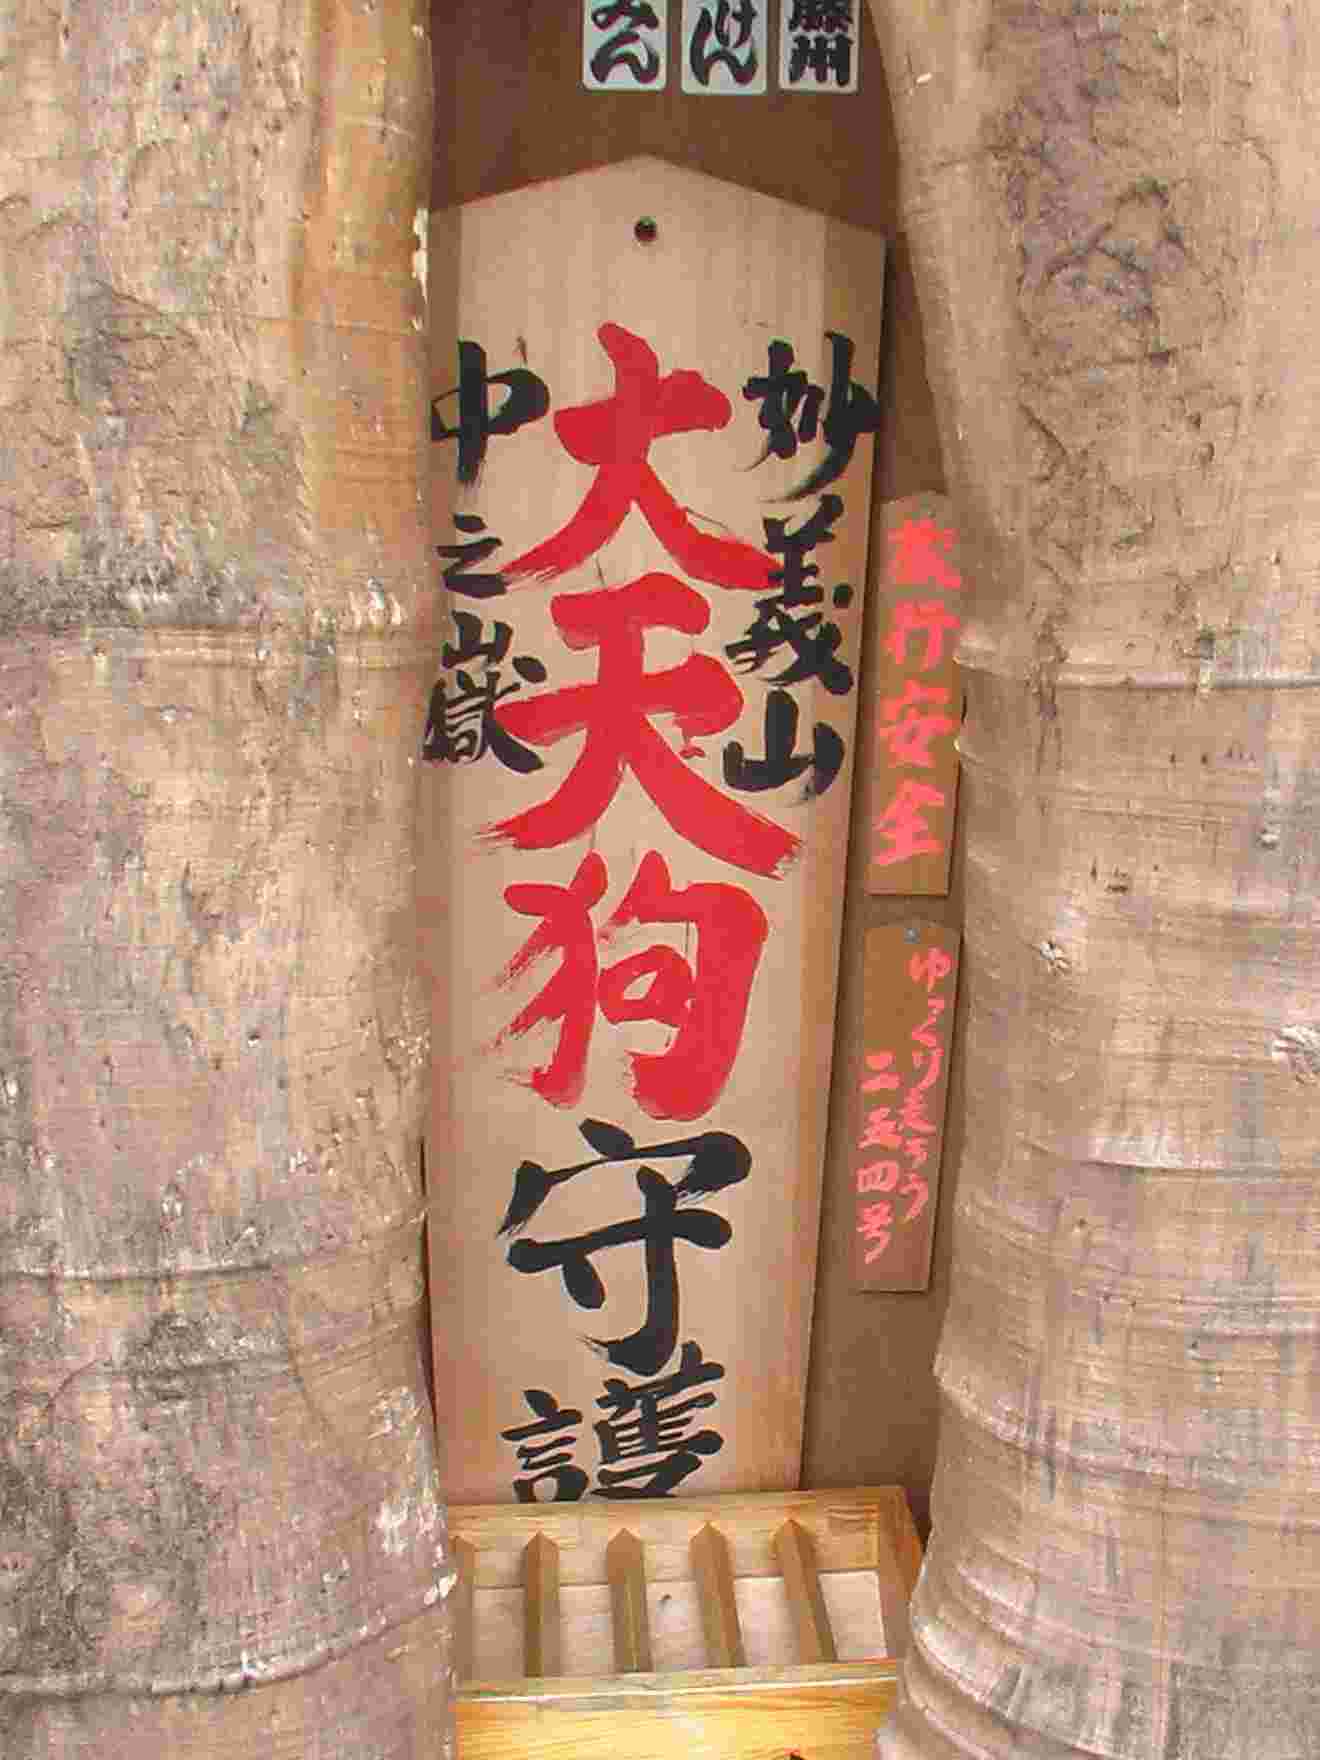 藤川
けん
みん
妙義山
大天狗
守護
中之嶽
安行安全
ゆっくり走ろう
二五四号